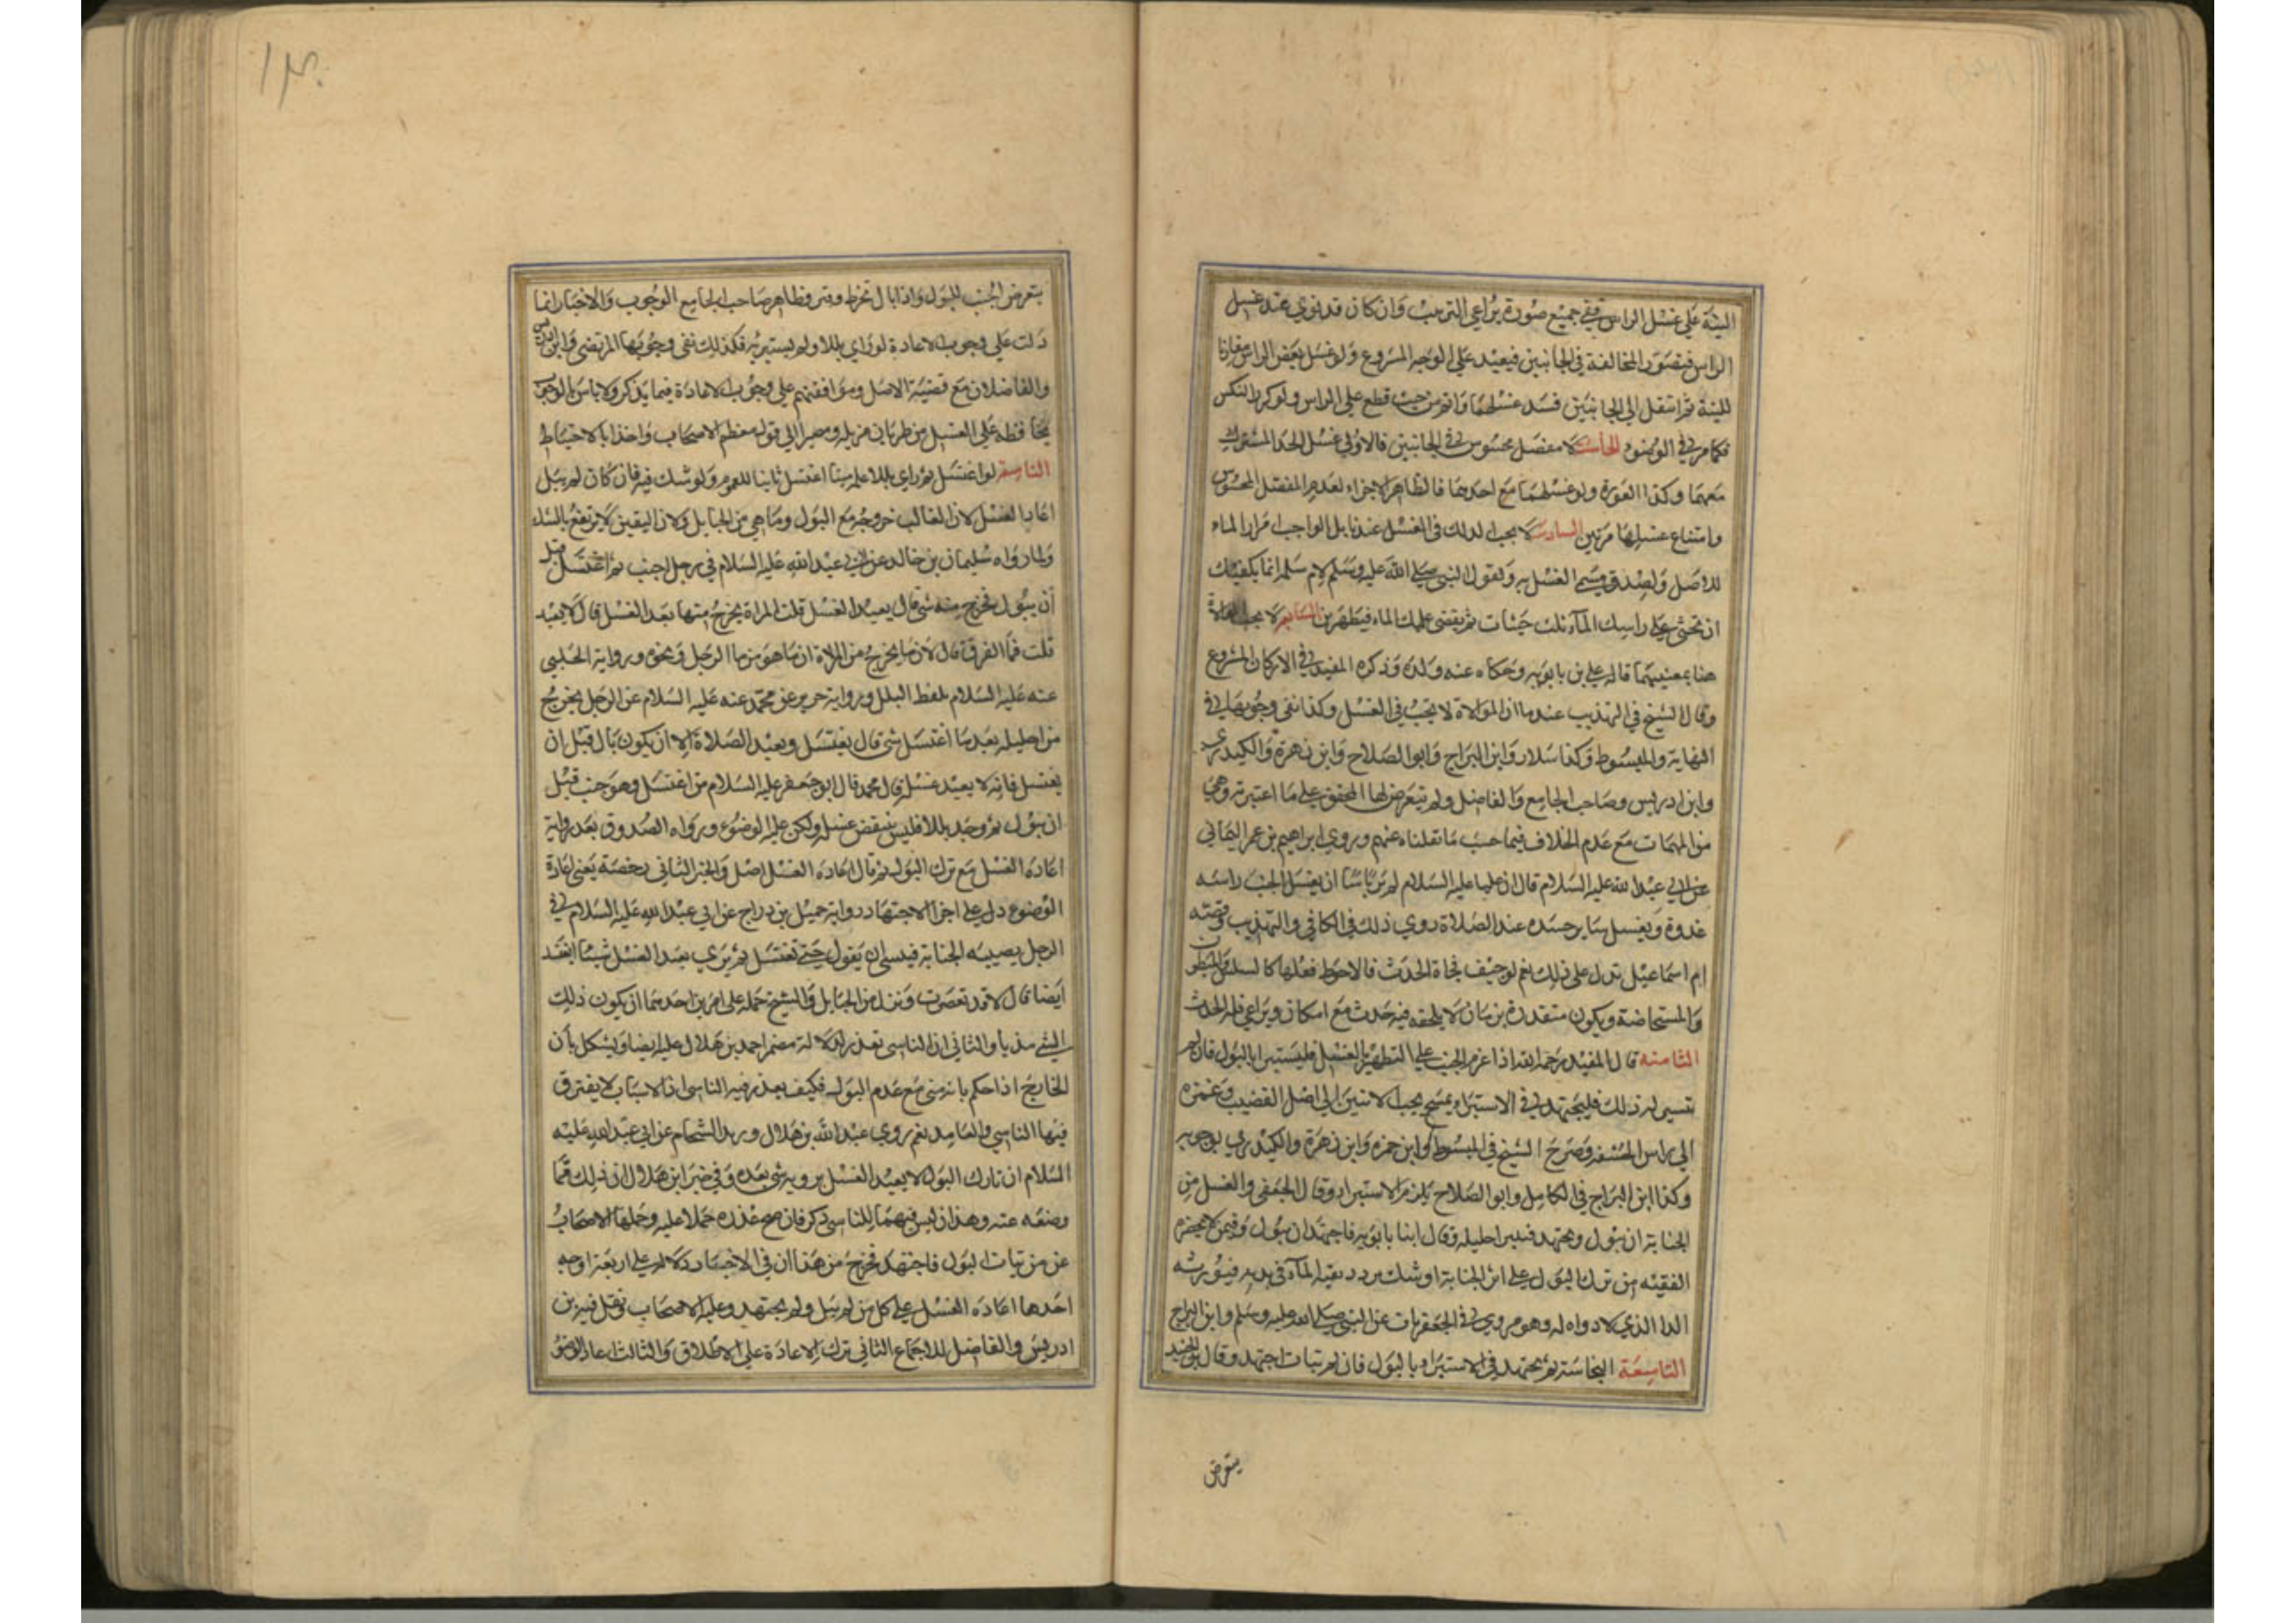 النية على غسل الراس ففي جميع صورة يراعي الترتيب وان كان قد نوي عند غسل
الراس فيتصور المخالفة في الجانبين فيعيد على الوجه المشروع ولو غسل بعض الراس مقارنا
للنية ثم انتقل الي الجانبين فسد غسلهما وانم من حيث قطع علي الراس ولو كرر النكس
فكما مر في الوضوء الخامسة لا مفصل محسوس في الجانبين فالاولي غسل الحد المشترك
معهما وكذا العورة ولو غسلهما مع احدهما فالظاهر الاجزاء لعدم المفصل المحسوس
وامتناع غسلها مرتين السادسة لا يجب الدلك في الغسل عندنا بل الواجب امرار الماء
للاصل ولصدق مسمي الغسل به ولقول النبي صلي الله عليه وسلم لام سلمة انما يكفيك
ان تحثي علي راسك الماء ثلث حثيات ثم يفضي عليك الماء فتطهرين السابعة لا يجب الموالاة
هنا بمعنييهما قاله علي بن بابويه وحكاه عنه ولده وذكره المفيد في الاركان المشروع
وقال الشيخ في التهذيب عندنا ان الموالاة لا تجب في الغسل وكذا نفي وجوبها في
النهاية والمبسوط وكذا سلار وابن البراج وابو الصلاح وابن زهرة والكيدري
وابن ادريس وصاحب الجامع والفاضل ولم يتعرض لها المحقق علي ما اعتبرته وهي
من المهمات مع عدم الخلاف فيها حسب ما نقلناه عنهم وروي ابراهيم بن عمر اليماني
عن ابي عبد الله عليه السلام قال ان عليا عليه السلام لم ير باسا ان يغسل الجنب راسه
غدوة ويغسل سائر جسده عند الصلاة روي ذلك في الكافي والتهذيب وقصة
ام اسماعيل تدل علي ذلك نعم لو خيف فجاة الحدث فالاحوط فعلها كالسلس والمبطون
والمستحاضة ويكون متقدرة بزمان لا يلحقه فيه حدث مع امكان ويراعي قلة الحدث
الثامنه قال المفيد رحمه الله اذا عزم الجنب علي التطهير بالغسل فليستبرا بالبول فان لم
تتيسر له ذلك فليجتهد في الاستبراء بمسح تحت الانثيين الي اصل القضيب وعنزه
الي راس الحشفه وصرح الشيخ في المبسوط وابن حمزه وابن زهرة والكيدري بوجوبه
وكذا ابن البراج في الكامل وابو الصلاح يلزم الاستبراء وقال الجعفي والغسل من
الجنابة ان تبول وتجتهد فنتر احليله وقال ابنا بابويه فاجتهد ان تبول وفيمن لا يحضره
الفقيه من ترك البول علي اثر الجنابة اوشك تردد بقية الماء في بدنه فيورثه
الداء الذي لا دواء له وهو مروي في الجعفريات عن النبي صلي الله عليه وسلم وابن البراج
التاسعة النجاسة ثم يجتهد في الاستبراء بالبول فان لم تيات اجتهد وقال ابن الجنيد
يتعرض
يتعرض الجنب للبول واذا بال تخرط ونتر وظاهر صاحب الجامع الوجوب والاخبار انما
دلت علي وجوب الاعادة لو راي بللا ولم يستبر به فكذلك نفي وجوبها المرتضي وابن ادريس
والفاضلان مع قضية الاصل وموافقتهم علي وجوب الاعادة فيما يذكر ولا باس بالوجوب
محافظة علي الغسل من طريان مزيله ومصيرا الي قول معظم الاصحاب واخذا بالاحتياط
التاسعة لو اغتسل ثم راي بللا علمه منيا اغتسل ثانيا للعموم ولو شك فيه فان كان لم يبل
اعاد الغسل لان الغالب خروجه مع البول وما هي من الحبايل ولان اليقين لا يرتفع بالشك
ولما رواه سليمان بن خالد عن ابي عبد الله عليه السلام في رجل اجنب ثم اغتسل قبل
ان يبول فخرج منه شي قال يعيد الغسل قلت المراة يخرج منها بعد الغسل قال لا يعيد
قلت فما الفرق قال لان ما يخرج من المراة انما هو من ما الرجل ونحوه ورواية الحلبي
عنه عليه السلام بلفظ البلل ورواية حريز عن محمد عنه عليه السلام عن الرجل يخرج
من احليله بعد ما اغتسل شي قال يغتسل ويعيد الصلاة الا ان يكون بال قبل ان
يغتسل فانه لا يعيد غسله قال محمد قال ابو جعفر عليه السلام من اغتسل وهو جنب قبل
ان يبول ثم وجد بللا فليس ينقض غسله ولكن عليه الوضوء ورواه الصدوق بعد رواية
اعادة الغسل مع ترك البول ثم قال اعادة الغسل اصل والخبر الثاني رخصة يعني اعادة
الوضوء دل علي اجزا الاجتهاد رواية جميل بن دراج عن ابي عبد الله عليه السلام في
الرجل يصيبه الجنابة فينسي ان يقول حتي تغتسل ثم يري بعد الغسل شيئا ايغتسل
ايضا قال لا قد تعصرت ونزل من الحبايل والشيخ حمله علي امرين احدهما ان يكون ذلك
الشي مذيا والثاني ان الناسي تعذر لدلالة مضمر احمد بن هلال عليه ايضا ويشكل بان
الخارج اذا حكم بانه مني مع عدم البول فكيف يعذر فيه الناسي اذ الاسباب لا يفترق
فيها الناسي والعامد نعم روي عبد الله بن هلال وزيد الشحام عن ابي عبد الله عليه
السلام ان تارك البول لا يعيد الغسل بروية شي بعده وفي خبر ابن هلال ان ذلك مما
وضعه عنه وهذان ليس فيهما للناسي ذكر فان صح عذره حملا عليه وحملها الاصحاب
عن من تيات البول فاجتهد فخرج من هذا ان في الاخبار دلالة علي اربعة اوجه
احدها اعادة الغسل علي كل من لم يبل ولم يجتهد وعليه الاصحاب ونقل فيه بن
ادريس والفاضل للاجماع الثاني ترك الاعادة علي الاطلاق والثالث اعادة الوضوء